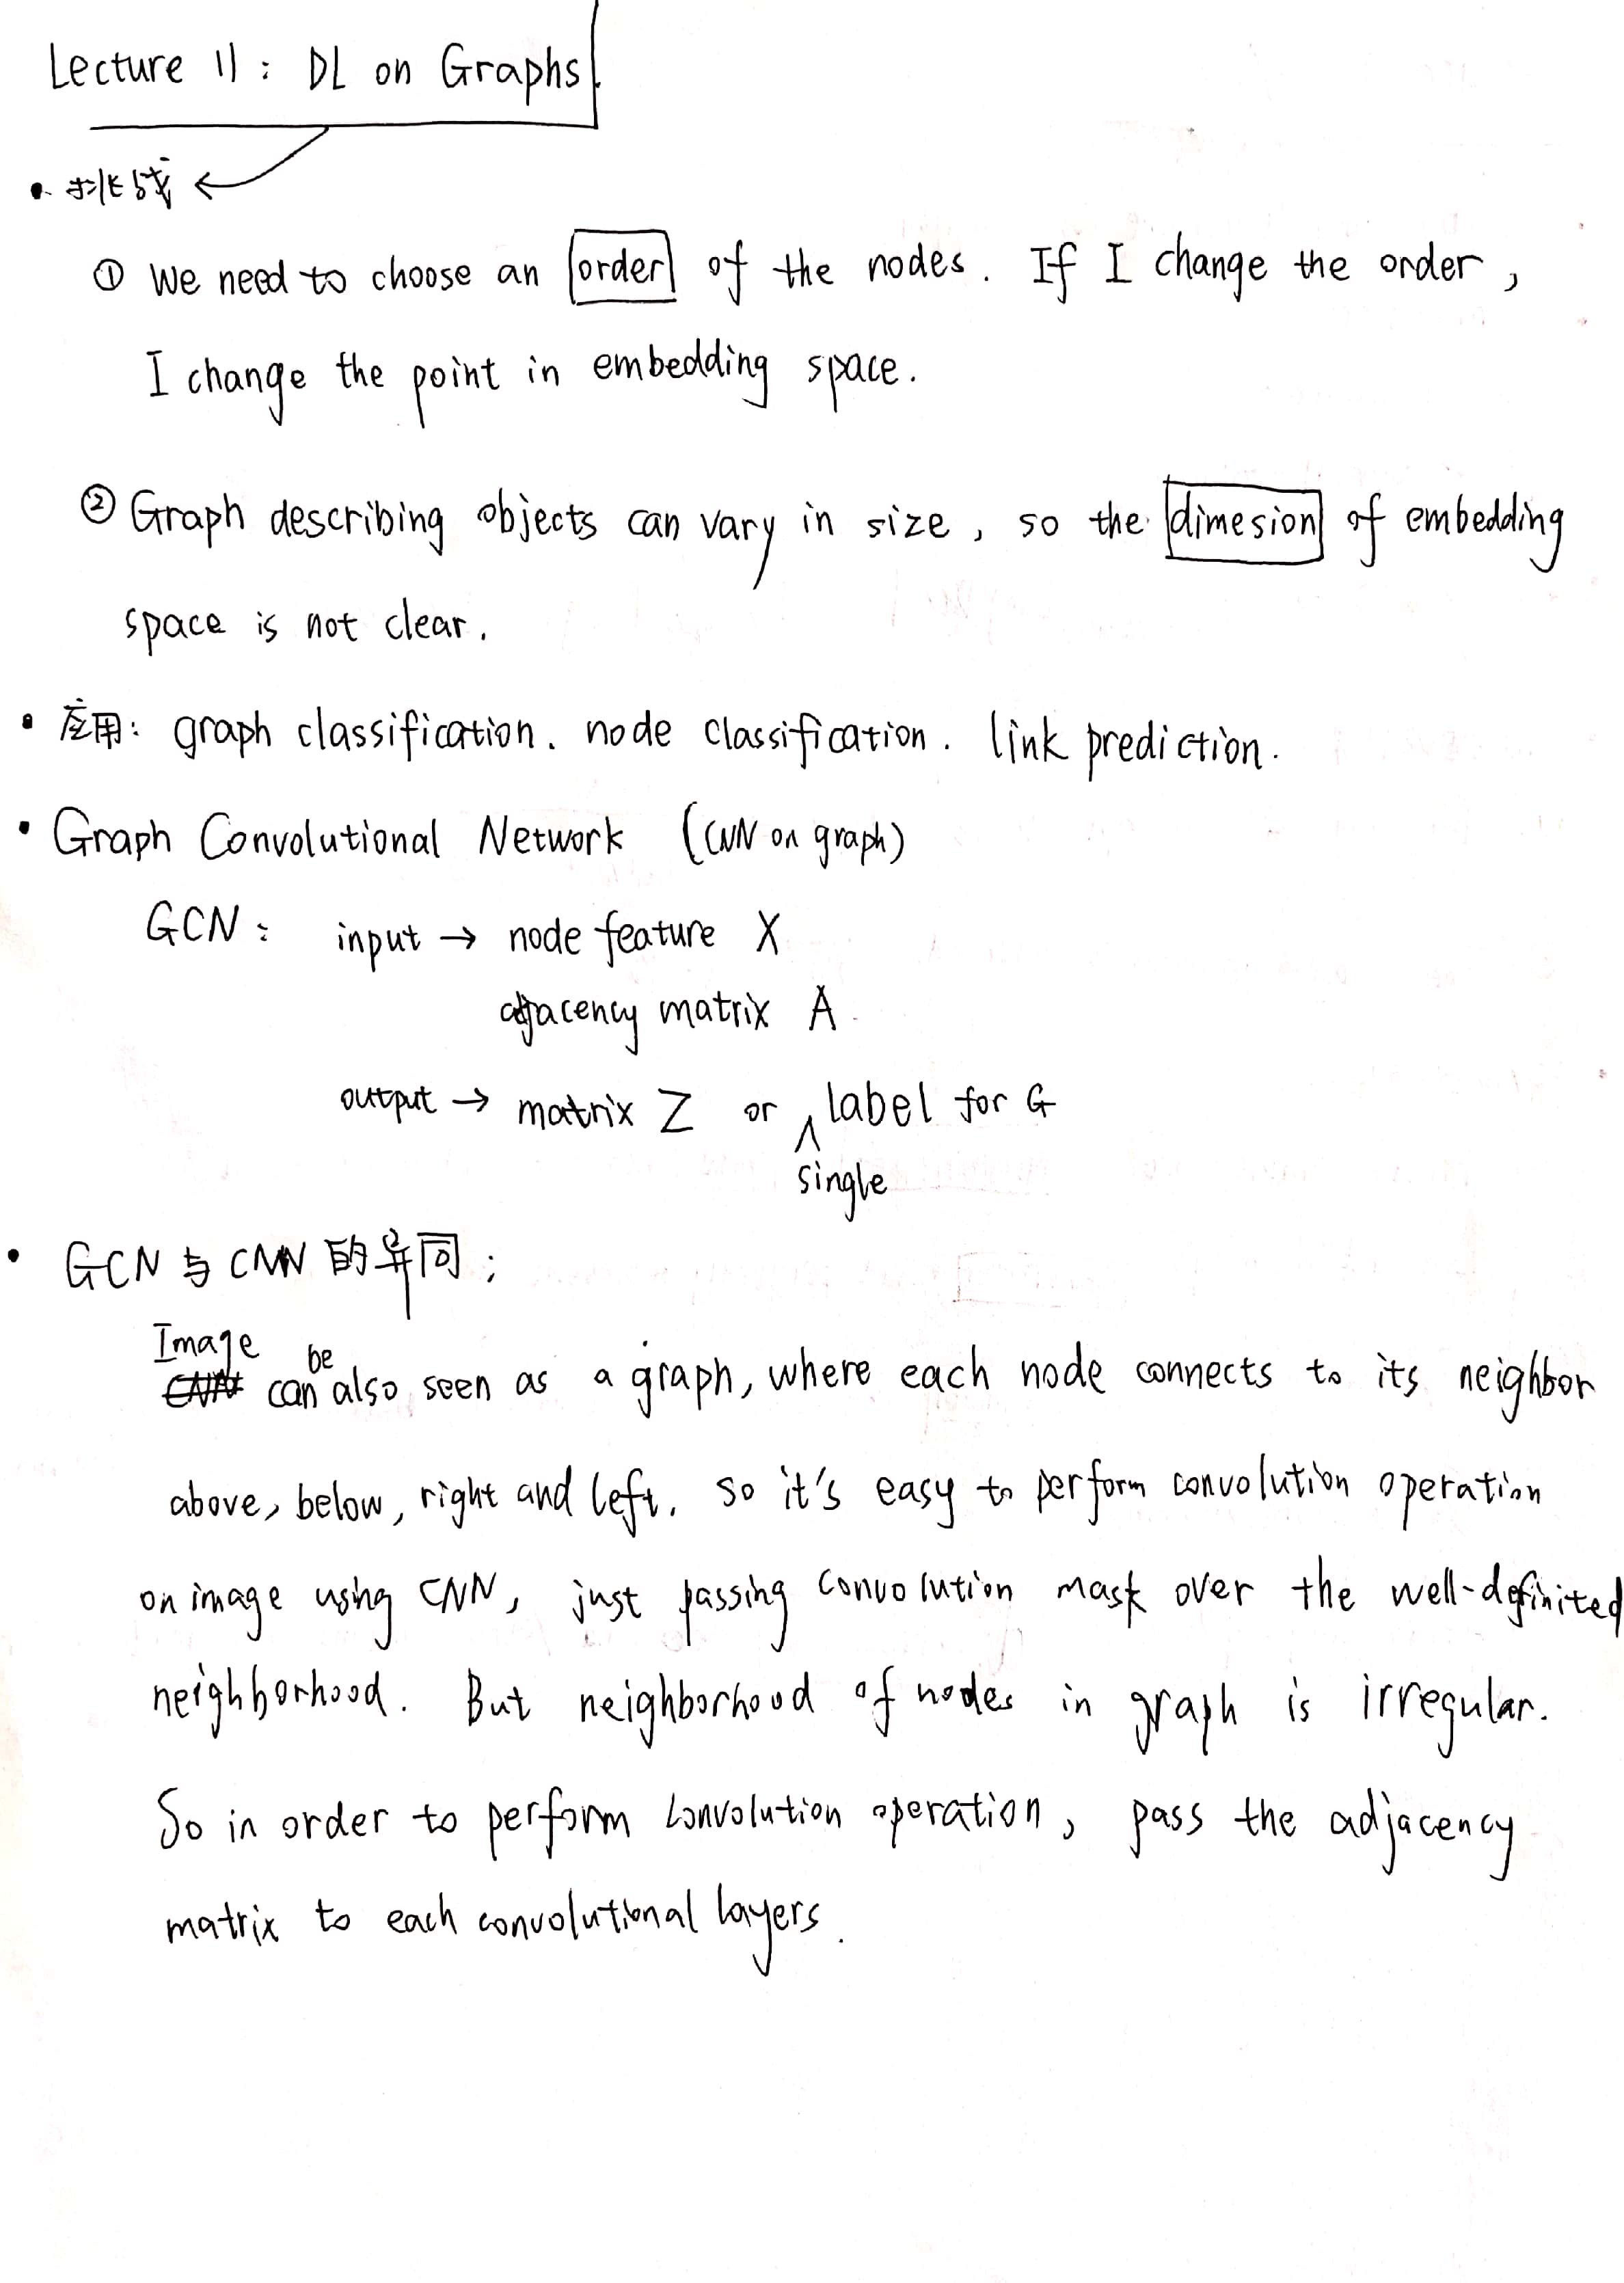 Lecture 11: DL on Graphs
• 挑战 ←
① We need to choose an order of the nodes. If I change the order,
I change the point in embedding space.
② Graph describing objects can vary in size, so the dimesion of embedding
space is not clear.
• 应用: graph classification. node classification. link prediction.
• Graph Convolutional Network (CNN on graph)
GCN: input → node feature X
adjacency matrix A
output → matrix Z or label for G
single
• GCN 与 CNN 的异同:
Image be
CNN can also seen as a graph, where each node connects to its neighbor
above, below, right and left. So it's easy to perform convolution operation
on image using CNN, just passing convolution mask over the well-definited
neighborhood. But neighborhood of nodes in graph is irregular.
So in order to perform convolution operation, pass the adjacency
matrix to each convolutional layers.